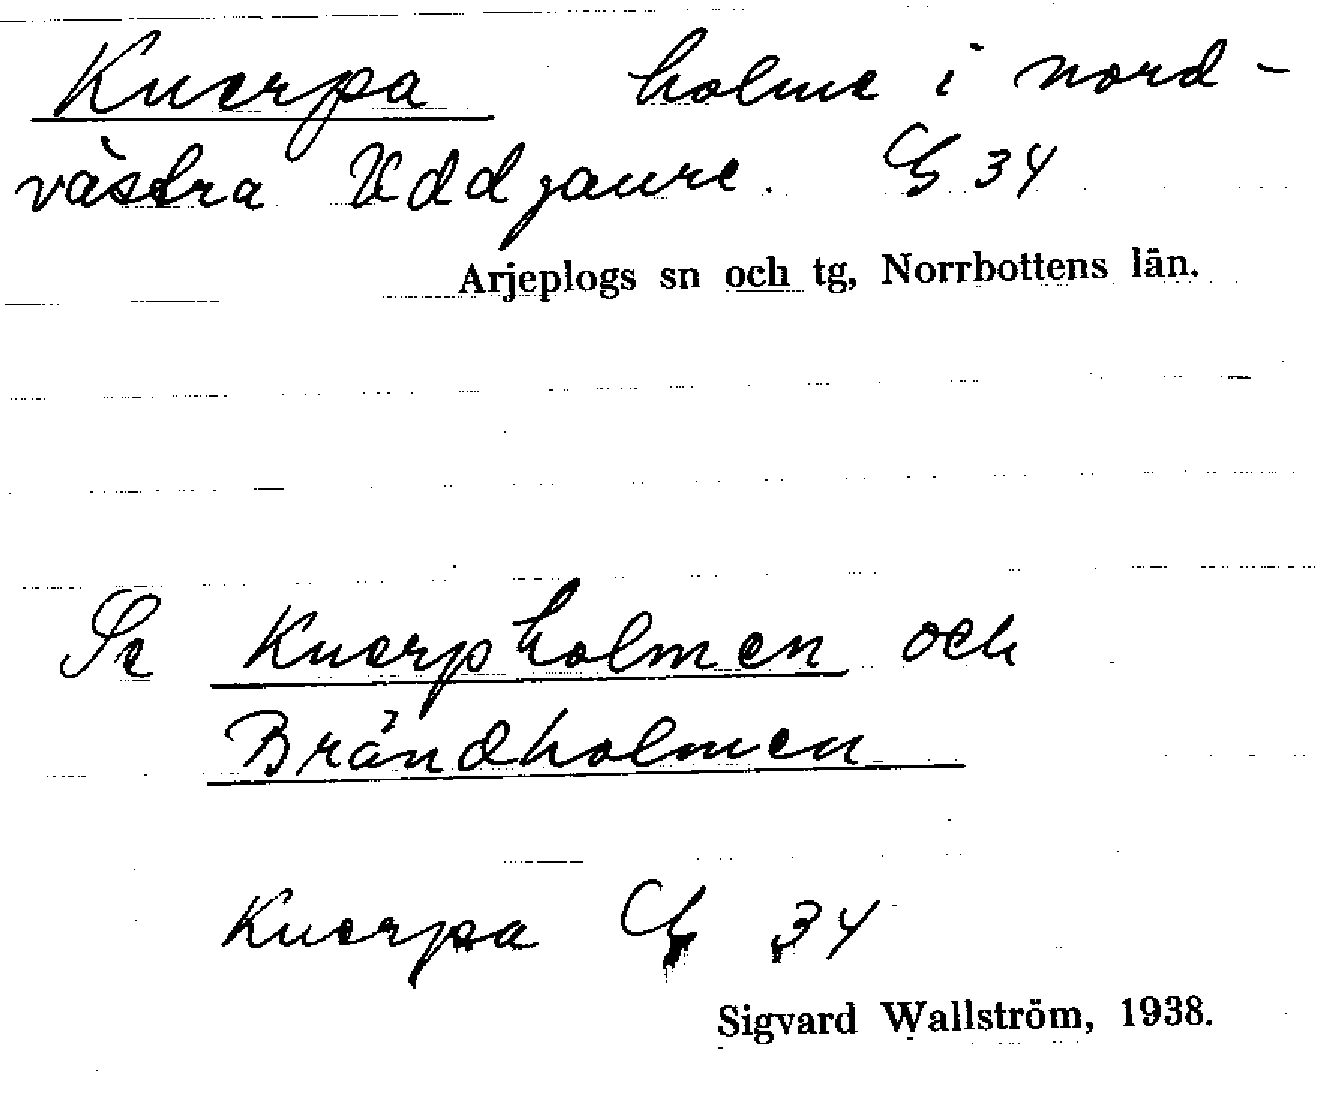 Kuerpa holme i nord-
västra Uddjaure. G 34
Arjeplogs sn och tg, Norrbottens län.
Se Kuerpholmen och
Brändholmen
Kuerpa G 34
Sigvard Wallström, 1938.